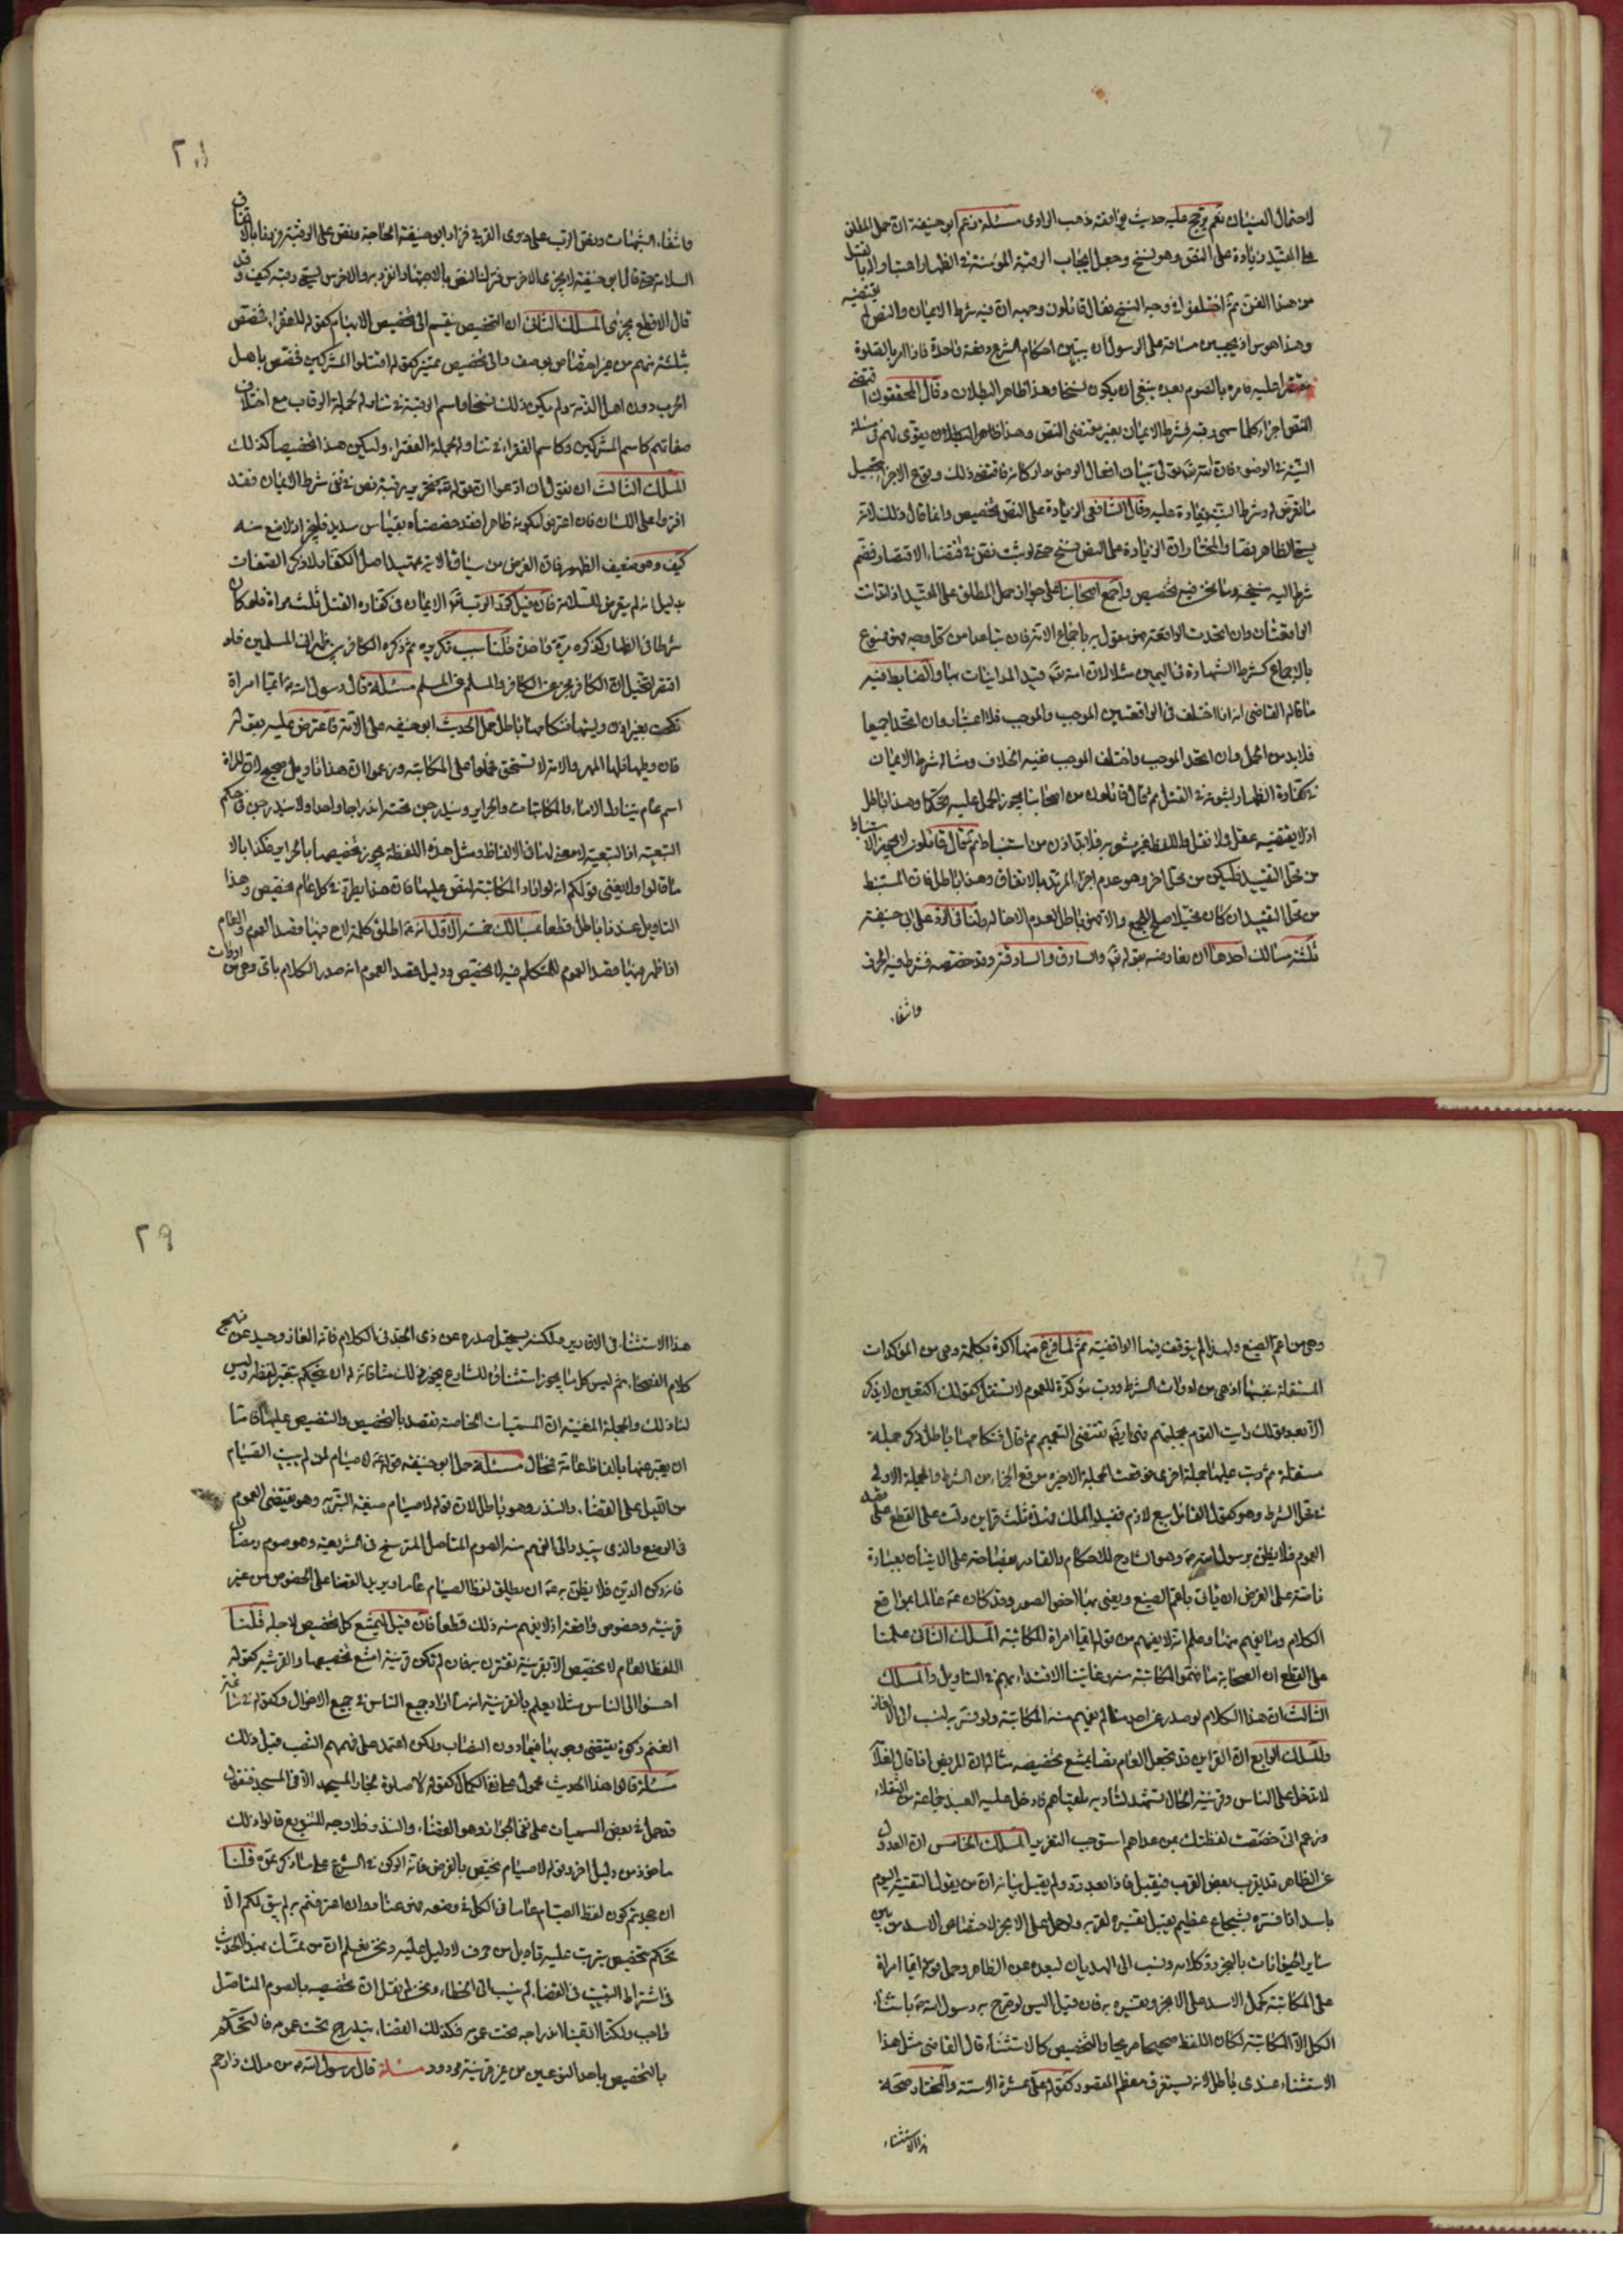 لاحتمال النسيان نعم يرجح عليه حديث يوافقه مذهب الراوى مسئلة زعم ابو حنيفة ان حمل المطلق
على المقيد زيادة على النص وهو نسخ وجعل ايجاب الرقبة المؤمنة فى الظهار اعتبارا بالقتل
من هذا الفن ثم اختلفوا فى وجه النسخ فقال قائلون وجهه ان فيه شرط الايمان والنص لم يقتضيه
وهذا هوس اذ يجب من مساقه على الرسول ان يبين احكام الشرع دفعة واحدة فاذا امر بالصلوة
مقتصرا عليه فامره بالصوم بعده ينبغى ان يكون نسخا وهذا ظاهر البطلان وقال المحققون اقتضى
النص اجزاء كلما سمى رقبة فشرط الايمان يغير مقتضى النص وهذا ظاهر البطلان يقوى لهم فى مسئلة
النية فى الوضوء فان الله تعالى تولى بيان افعال الوضوء واركانه فاقتضى ذلك وقوع الاجزاء بتحصيل
ما تعرض له وشرط النية زيادة عليه وقال الشافعى الزيادة على النص تخصيص وانما قال ذلك لانه
يسمى الظاهر نصا والمختار ان الزيادة على النص نسخ حتى لو ثبت نص فى اقتضاء الاقتصار فضم
شرط اليه نسخه وما نحن فيه تخصيص واجمع اصحابنا على جواز حمل المطلق على المقيد اذا تدانت
الواقعتان وان اتحدت الواقعة فهو مقول به باجماع الامة فان تباعدا من كل وجه فهو ممنوع
بالاجماع كشرط الشهادة فى اليمين مثلا لان الله تعالى قيد المداينات بها والضابط فيه
ما قاله القاضى انه اذا اختلف فى الواقعتين الموجب والموجب فلا اعتبار وان اتحدا جميعا
فلا بد من الحمل وان اتحد الموجب واختلف الموجب ففيه الخلاف ومثاله شرط الايمان
فى كفارة الظهار لثبوته فى القتل ثم قال قائلون من اصحابنا يجوز الحمل عليه تحكما وهذا باطل
اذ لا يقتضيه عقل ولا نقل واللفظ غير مشعر به فلا بد اذن من استنباط ثم قال قائلون لا يجوز الاستنباط
من محل التقييد فليكن من محل اخر وهو عدم اجزاء المرتد بالاتفاق وهذا باطل فان المستنبط
من محل التقييد ان كان مخيلا صلح للجمع والا فهو باطل لعدم الاخالة ولنا فى الرد على ابى حنيفة
ثلثة مسالك احدها ان نعارضه بقوله تعالى والسارق والسارقة وقد خصصه فشرط فيه الحرز
وانتفاء
وانتفاء الشبهات ونص الرب على ذوى القربى فزاد ابو حنيفة الحاجة ونص على الرقبة وزدنا بالاتفاق
السلامة حتى قال ابو حنيفة لا يجزى الاخرس فنزلنا النص بالاجتهاد والاخرس يسمى رقبة كيف وقد
قال الاقطع يجزى المسلك الثانى ان التخصيص ينقسم الى تخصيص الابهام كقوله للفقراء فخصص
بثلثة منهم من غير اختصاص بوصف والى تخصيص تمييز كقوله اقتلوا المشركين فخصص باهل
الحرب دون اهل الذمة ولم يكن ذلك نسخا واسم الرقبة فى تناوله لجملة الرقاب مع اختلاف
صفاتهم كاسم المشركين وكاسم الفقراء فى تناوله لجملة الفقراء وليكن هذا تخصيصا كذلك
المسلك الثالث ان نقول ان ادعوا ان قوله تعالى فتحرير رقبة نص فى نفى شرط الايمان فقد
افتروا على اللسان فان اعترفوا بكونه ظاهرا فقد خصصناه بقياس سديد فليجز اذ لا مانع منه
كيف وهو ضعيف الظهور فان الغرض من سياق الاية تمهيد اصل الكفارة لا ذكر الصفات
بدليل انه لم يتعرض للسلامة فان قيل كرر الرب تعالى الايمان فى كفارة القتل ثلث مرات فلو كان
شرطا فى الظهار لذكره مرة واحدة قلنا سبب تكريره ثم ذكره الكافر بين ظهرانى المسلمين فلو
اقتصر لتخيل ان الكافر يجزى عن الكافر والمسلم عن المسلم مسئلة قال رسول الله ص ايما امراة
نكحت بغير اذن وليها فنكاحها باطل حمل الحديث ابو حنيفة على الامة فاعترض عليه بقوله
فان وطيها فلها المهر والامة لا تستحق فحملوا على المكاتبة وزعموا ان هذا تاويل صحيح لان المراة
اسم عام يتناول الاماء والمكاتبات والحراير ويندرجن تحته اندراجا واحدا ولا يندرجن فى حكم
التبعية اذ التبعية لا معنى لها فى الالفاظ ومثل هذه اللفظة يجوز تخصيصها بالحراير فكذا بالاماء
ما قالوا ولا يغنى قولكم انه لو اراد المكاتبة لنص عليها فان هذا يطرد فى كل عام مخصص وهذا
التاويل عندنا باطل قطعا بمسالك خمسة الاول انه ص اطلق كلمة لاح فيها قصد العموم والعام
اذا ظهر منها قصد العموم للمتكلم فيه لا يخصص ودليل قصد العموم انه صدر الكلام باى وهى من ادوات
وهى من اعم الصيغ ولهذا لم يتوقف فيها الواقفية ثم لما فرغ منها اكده بكلمة ما وهى من المؤكدات
المستقلة بنفسها اذ هى من ادوات الشرط ورتبت مؤكدة للعموم لا تستقل كقولك اكتعين لا يذكر
الا بعد قولك رايت القوم بجملتهم فبهما تقتضى التعميم ثم قال فنكاحها باطل ذكر جملة
مستقلة ثم رتب عليها جملة اخرى فوقعت الجملة الاخيرة موقع الجزاء من الشرط والجملة الاولى
فى محل الشرط وهو كقول القائل بيع لازم فيفيد الملك فهذه ثلث قراين دلت على القطع على قصد
العموم فلا يظن برسول الله ص وهو الشارع للاحكام والقادر بفصاحته على الاتيان بعبارة
ناصة على الغرض ان يأتى باعم الصيغ ويعنى بها اخص الصور وقد كان ص عالما بمواقع
الكلام وما يفهم منها وعلم انه لا يفهم من قوله ايما امراة المكاتبة المسلك الثانى علمنا
على القطع ان الصحابة ما فهموا المكاتبة منه وغايتنا الاقتداء بهم فى التاويل والمسلك
الثالث ان هذا الكلام لو صدر عن احدنا لم يفهم منه المكاتبة ولو فسر به لنسب الى الالغاز
والمسلك الرابع ان القراين قد تجعل العام نصا يمتنع تخصيصه مثاله ان المريض اذا قال لغلامه
لا تدخل على الناس وقرينة الحال تشهد لتأذيه بلقياهم فادخل عليه العبد جماعة من الثقلاء
وزعم انى خصصت لفظتك بمن عداهم استوجب التعزير المسلك الخامس ان العدول
عن الظاهر قد يقرب بعض القرب فيقبل فاذا بعد رد ولم يقبل بيانه ان من يقول لقيت اليوم
باسد اذا فسره بشجاع عظيم يقبل تفسيره لقربه ولو حمل على الابخر لاختصاص الاسد من بين
ساير الحيوانات بالبخر رد كلامه ونسب الى الهذيان لبعده عن الظاهر وحمل قوله ايما امراة
على المكاتبة كحمل الاسد على الابخر وتفسيره به فان قيل اليس لو صرح به رسول الله ص باستثناء
الكل الا المكاتبة لكان اللفظ صحيحا صريحا والتخصيص كالاستثناء قال القاضى مثل هذا
الاستثناء عندى باطل لانه يستغرق معظم المقصود كقوله على عشرة الا ستة والمختار صحة
هذا الاستثناء
هذا الاستثناء فى الاقارير ولكنه يستحيل صدره عن ذى الجد فى الكلام فانه الغاز وحيد عن منهج
كلام الفصحاء ثم ليس كل ما يجوز استثناؤه للشارع يجوز فى ذلك مثاقاته له ان يتحكم بتغير لفظه وليس
لنا ذلك والجملة المغنية ان المسميات الخاصة تقصد بالتخصيص والتنصيص عليها فاما
ان يعبر عنها بالفاظ عامة فمحال مسئلة حمل ابو حنيفة قوله ص لا صيام لمن لم يبيت الصيام
من الليل على القضاء والنذر وهو باطل لان قوله لا صيام صيغة التبرئة وهو يقتضى العموم
فى الوضع والذى يتبدر الى الفهم منه الصوم المتأصل المترسخ فى الشريعة وهو صوم رمضان
فانه ركن الدين فلا يظن به ص ان يطلق لفظ الصيام عاما ويريد به القضا على الخصوص من غير
قرينة وخصوص واقعة اذ لا يفهم منه ذلك قطعا فان قيل ليمتنع كل تخصيص لاجله قلنا
اللفظ العام لا يخصص الا بقرينة تقترن به فان لم تكن قرينة امتنع تخصيصها والقرينة كقوله
احسنوا الى الناس مثلا يعلم بالقرينة انه ما اراد جميع الناس فى جميع الاحوال وكقوله فى سائمة
الغنم زكوة يقتضى وجوبها فيما دون النصاب ولكن اعتمد على فهمهم النصب قبل ذلك
مسئلة قالوا هذا الحديث محمول على نفى الكمال كقوله لا صلوة لجار المسجد الا فى المسجد فنقول
قد حمل فى بعض المسميات على نفى الجواز وهو القضاء والنذر فلا وجه للتنويع قالوا ذلك
ماخوذ من دليل اخر وقوله لا صيام يختص بالفرض فانه الركن فى الشرع على ما ذكرتموه قلنا
ان جحدتم كون لفظ الصيام عاما فى الكل فى وضعه فهو عناد وان اعترفتم به لم يبق لكم الا
تحكم بتخصيص يترتب عليه تاويل من حرف لا دليل عليه ونحن نعلم ان من تمسك بهذا الحديث
فى اشتراط التبييت فى القضاء لم ينسب الى الخطاء ونحن لم نقل ان تخصيصه بالصوم المتاصل
واجب ولكنا الفينا اندراجه تحت عمومه فكذلك القضاء يندرج تحت عمومه فالتحكم
بالتخصيص باحد النوعين من غير قرينة مردود مسئلة قال رسول الله ص من ملك ذا رحم